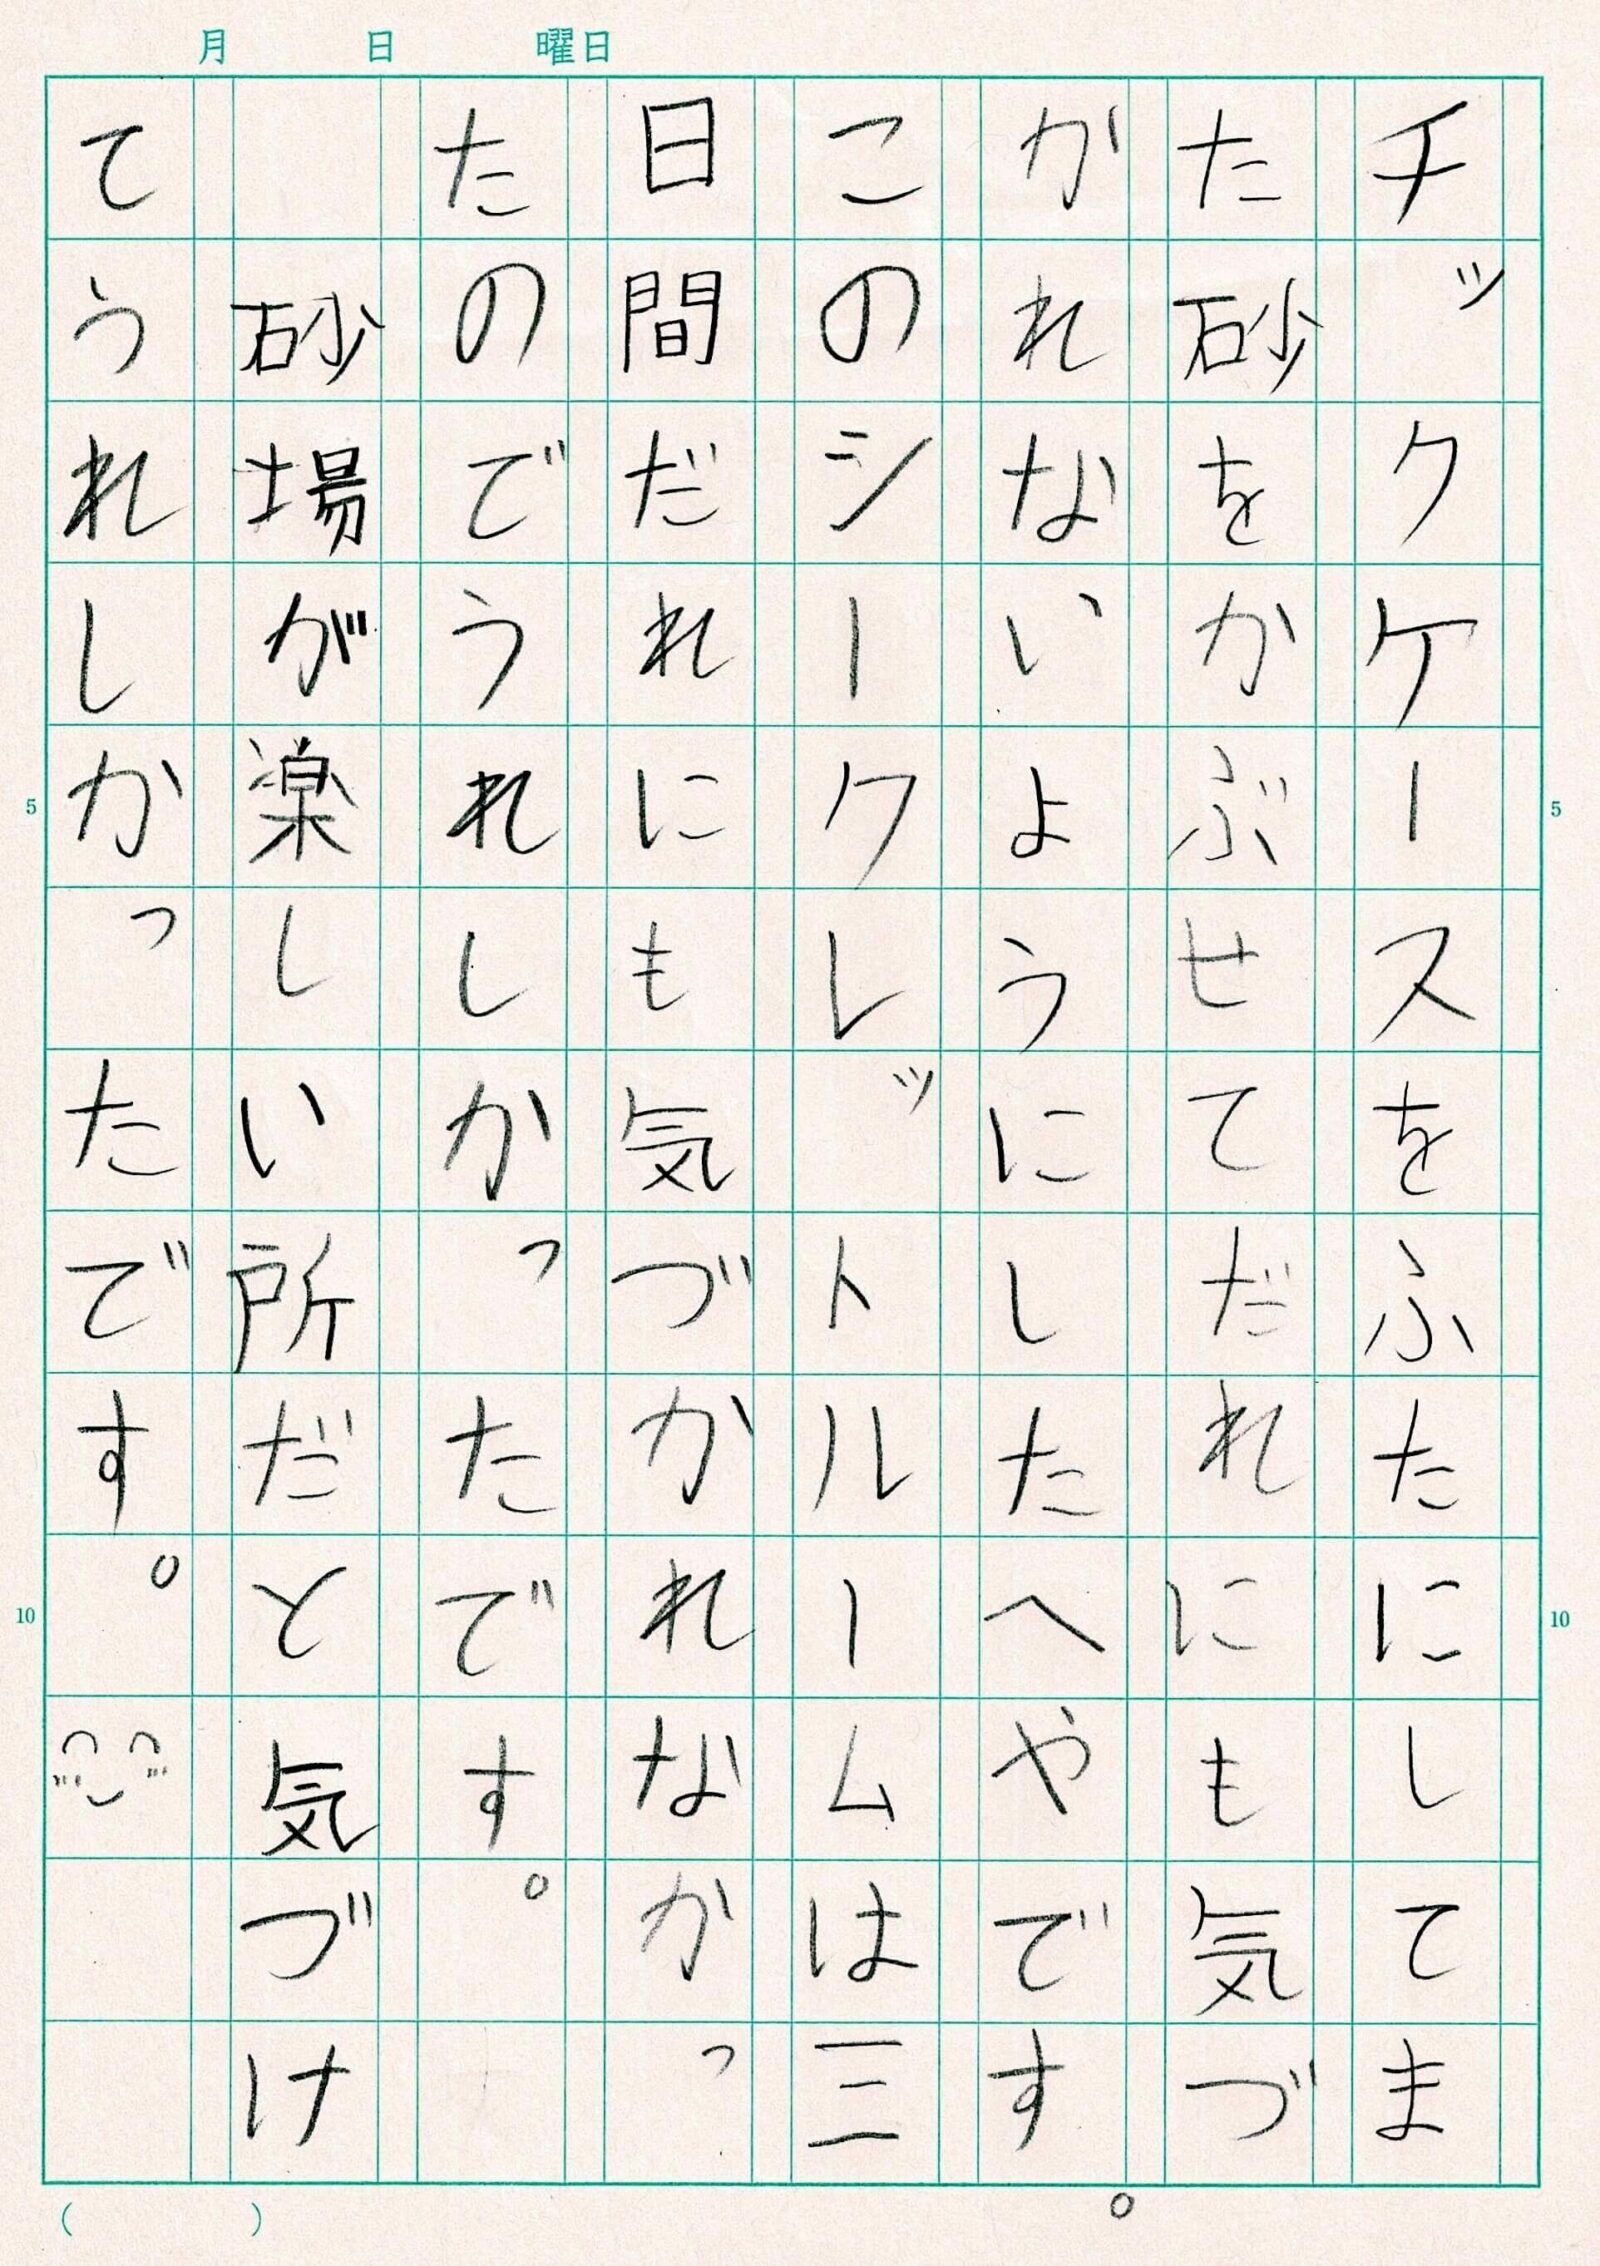 月 日 曜日
チックケースをふたにしてま
た砂をかぶせてだれにも気づ
かれないようにしたへやです。
このシークレットルームは三
日間だれにも気づかれなかっ
たのでうれしかったです。
砂場が楽しい所だと気づけ
てうれしかったです。
5
10
5
10
( )